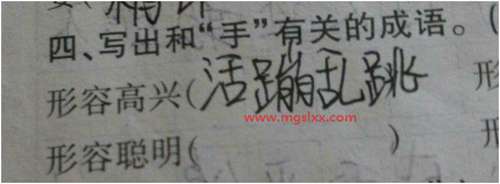 四、写出和“手”有关的成语。(
形容高兴(活蹦乱跳
www.mgslxx.com
形容聪明( )